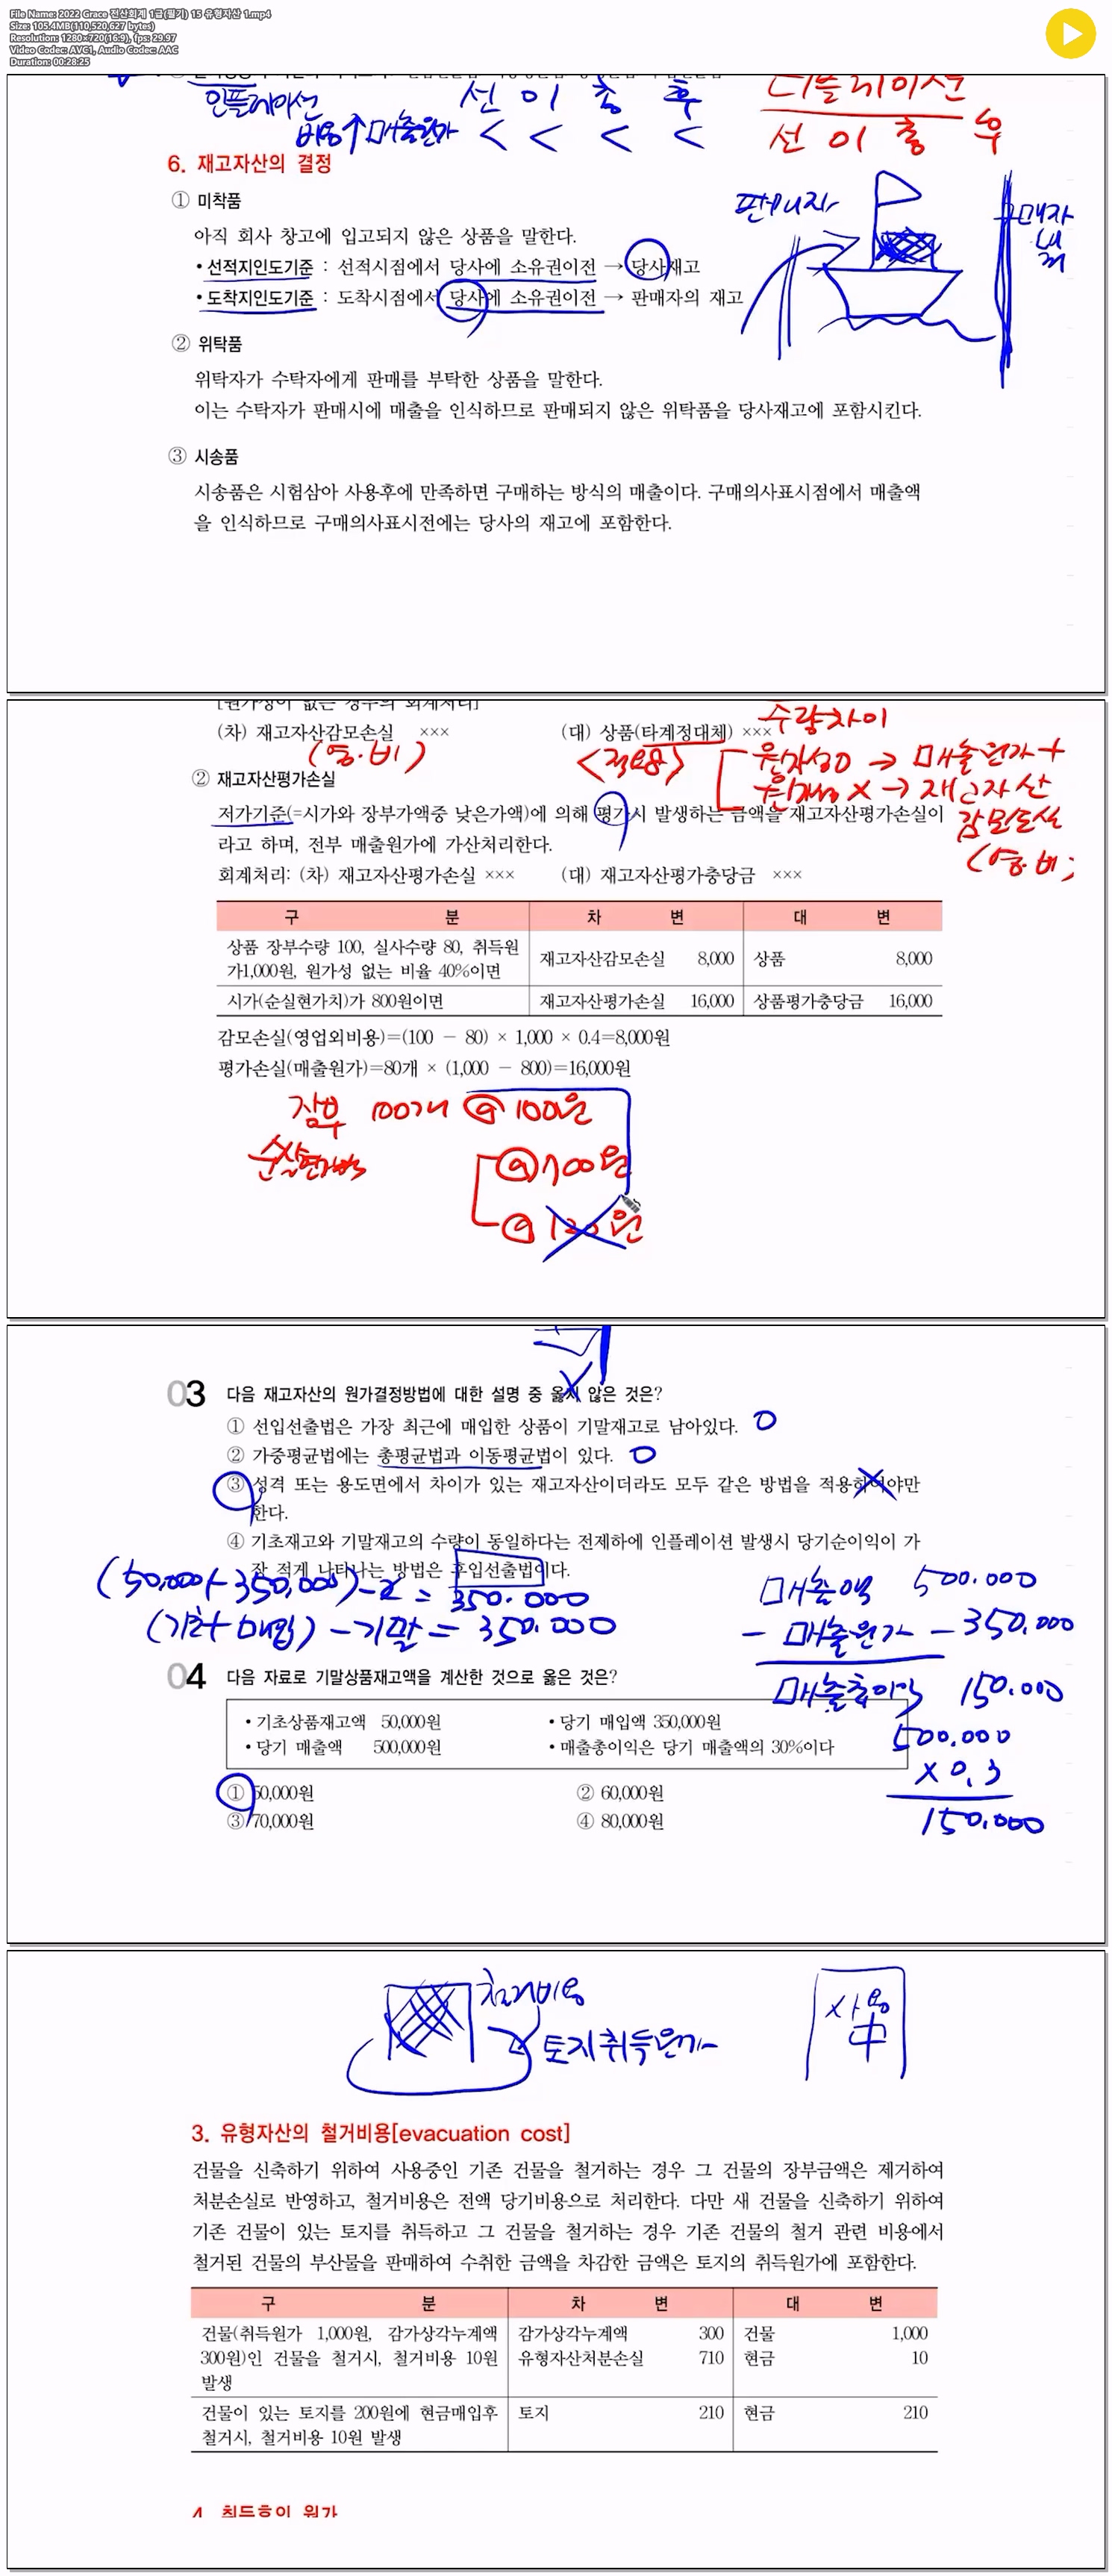 File Name: 2022 Grace 전산회계 1급(필기) 15 유형자산 1.mp4
Size: 105.4MB(110,520,627 bytes)
Resolution: 1280×720(16:9), fps: 29.97
Video Codec: AVC1, Audio Codec: AAC
Duration: 00:28:25
인플레이션 선 이 총 후 디플레이션
비용↑매출원가 < < < < 선 이 총 후
6. 재고자산의 결정
① 미착품
판매자
아직 회사 창고에 입고되지 않은 상품을 말한다.
• 선적지인도기준 : 선적시점에서 당사에 소유권이전 → 당사재고
• 도착지인도기준 : 도착시점에서 당사에 소유권이전 → 판매자의 재고
② 위탁품
위탁자가 수탁자에게 판매를 부탁한 상품을 말한다.
이는 수탁자가 판매시에 매출을 인식하므로 판매되지 않은 위탁품을 당사재고에 포함시킨다.
③ 시송품
시송품은 시험삼아 사용후에 만족하면 구매하는 방식의 매출이다. 구매의사표시점에서 매출액
을 인식하므로 구매의사표시전에는 당사의 재고에 포함한다.
[원가성이 없는 경우의 회계처리]
수량차이
(차) 재고자산감모손실 ××× (대) 상품(타계정대체) ×××
(영·비) <적요8> 원가성0 → 매출원가+
원가성 X → 재고자산
감모손실
(영·비)
② 재고자산평가손실
저가기준(=시가와 장부가액중 낮은가액)에 의해 평가시 발생하는 금액을 재고자산평가손실이
라고 하며, 전부 매출원가에 가산처리한다.
회계처리: (차) 재고자산평가손실 ××× (대) 재고자산평가충당금 ×××
구 분 차 변 대 변
상품 장부수량 100, 실사수량 80, 취득원
가1,000원, 원가성 없는 비율 40%이면 재고자산감모손실 8,000 상품 8,000
시가(순실현가치)가 800원이면 재고자산평가손실 16,000 상품평가충당금 16,000
감모손실(영업외비용)=(100 - 80) × 1,000 × 0.4=8,000원
평가손실(매출원가)=80개 × (1,000 - 800)=16,000원
장부 100개 @ 100원
순실현가능 @ 100원
@ 120원
03 다음 재고자산의 원가결정방법에 대한 설명 중 옳지 않은 것은?
① 선입선출법은 가장 최근에 매입한 상품이 기말재고로 남아있다. O
② 가중평균법에는 총평균법과 이동평균법이 있다. O
③ 성격 또는 용도면에서 차이가 있는 재고자산이더라도 모두 같은 방법을 적용하여야만
한다.
④ 기초재고와 기말재고의 수량이 동일하다는 전제하에 인플레이션 발생시 당기순이익이 가
장 적게 나타나는 방법은 후입선출법이다.
(50,000+350,000)-x = 350.000
(기초+매입) - 기말 = 350.000
매출액 500.000
- 매출원가 - 350.000
매출총이익 150.000
04 다음 자료로 기말상품재고액을 계산한 것으로 옳은 것은?
• 기초상품재고액 50,000원 • 당기 매입액 350,000원
• 당기 매출액 500,000원 • 매출총이익은 당기 매출액의 30%이다
500.000
× 0.3
150.000
① 50,000원 ② 60,000원
③ 70,000원 ④ 80,000원
철거비용
토지취득원가
사용
中
3. 유형자산의 철거비용[evacuation cost]
건물을 신축하기 위하여 사용중인 기존 건물을 철거하는 경우 그 건물의 장부금액은 제거하여
처분손실로 반영하고, 철거비용은 전액 당기비용으로 처리한다. 다만 새 건물을 신축하기 위하여
기존 건물이 있는 토지를 취득하고 그 건물을 철거하는 경우 기존 건물의 철거 관련 비용에서
철거된 건물의 부산물을 판매하여 수취한 금액을 차감한 금액은 토지의 취득원가에 포함한다.
구 분 차 변 대 변
건물(취득원가 1,000원, 감가상각누계액 감가상각누계액 300 건물 1,000
300원)인 건물을 철거시, 철거비용 10원 유형자산처분손실 710 현금 10
발생
건물이 있는 토지를 200원에 현금매입후 토지 210 현금 210
철거시, 철거비용 10원 발생
4. 취득후의 원가